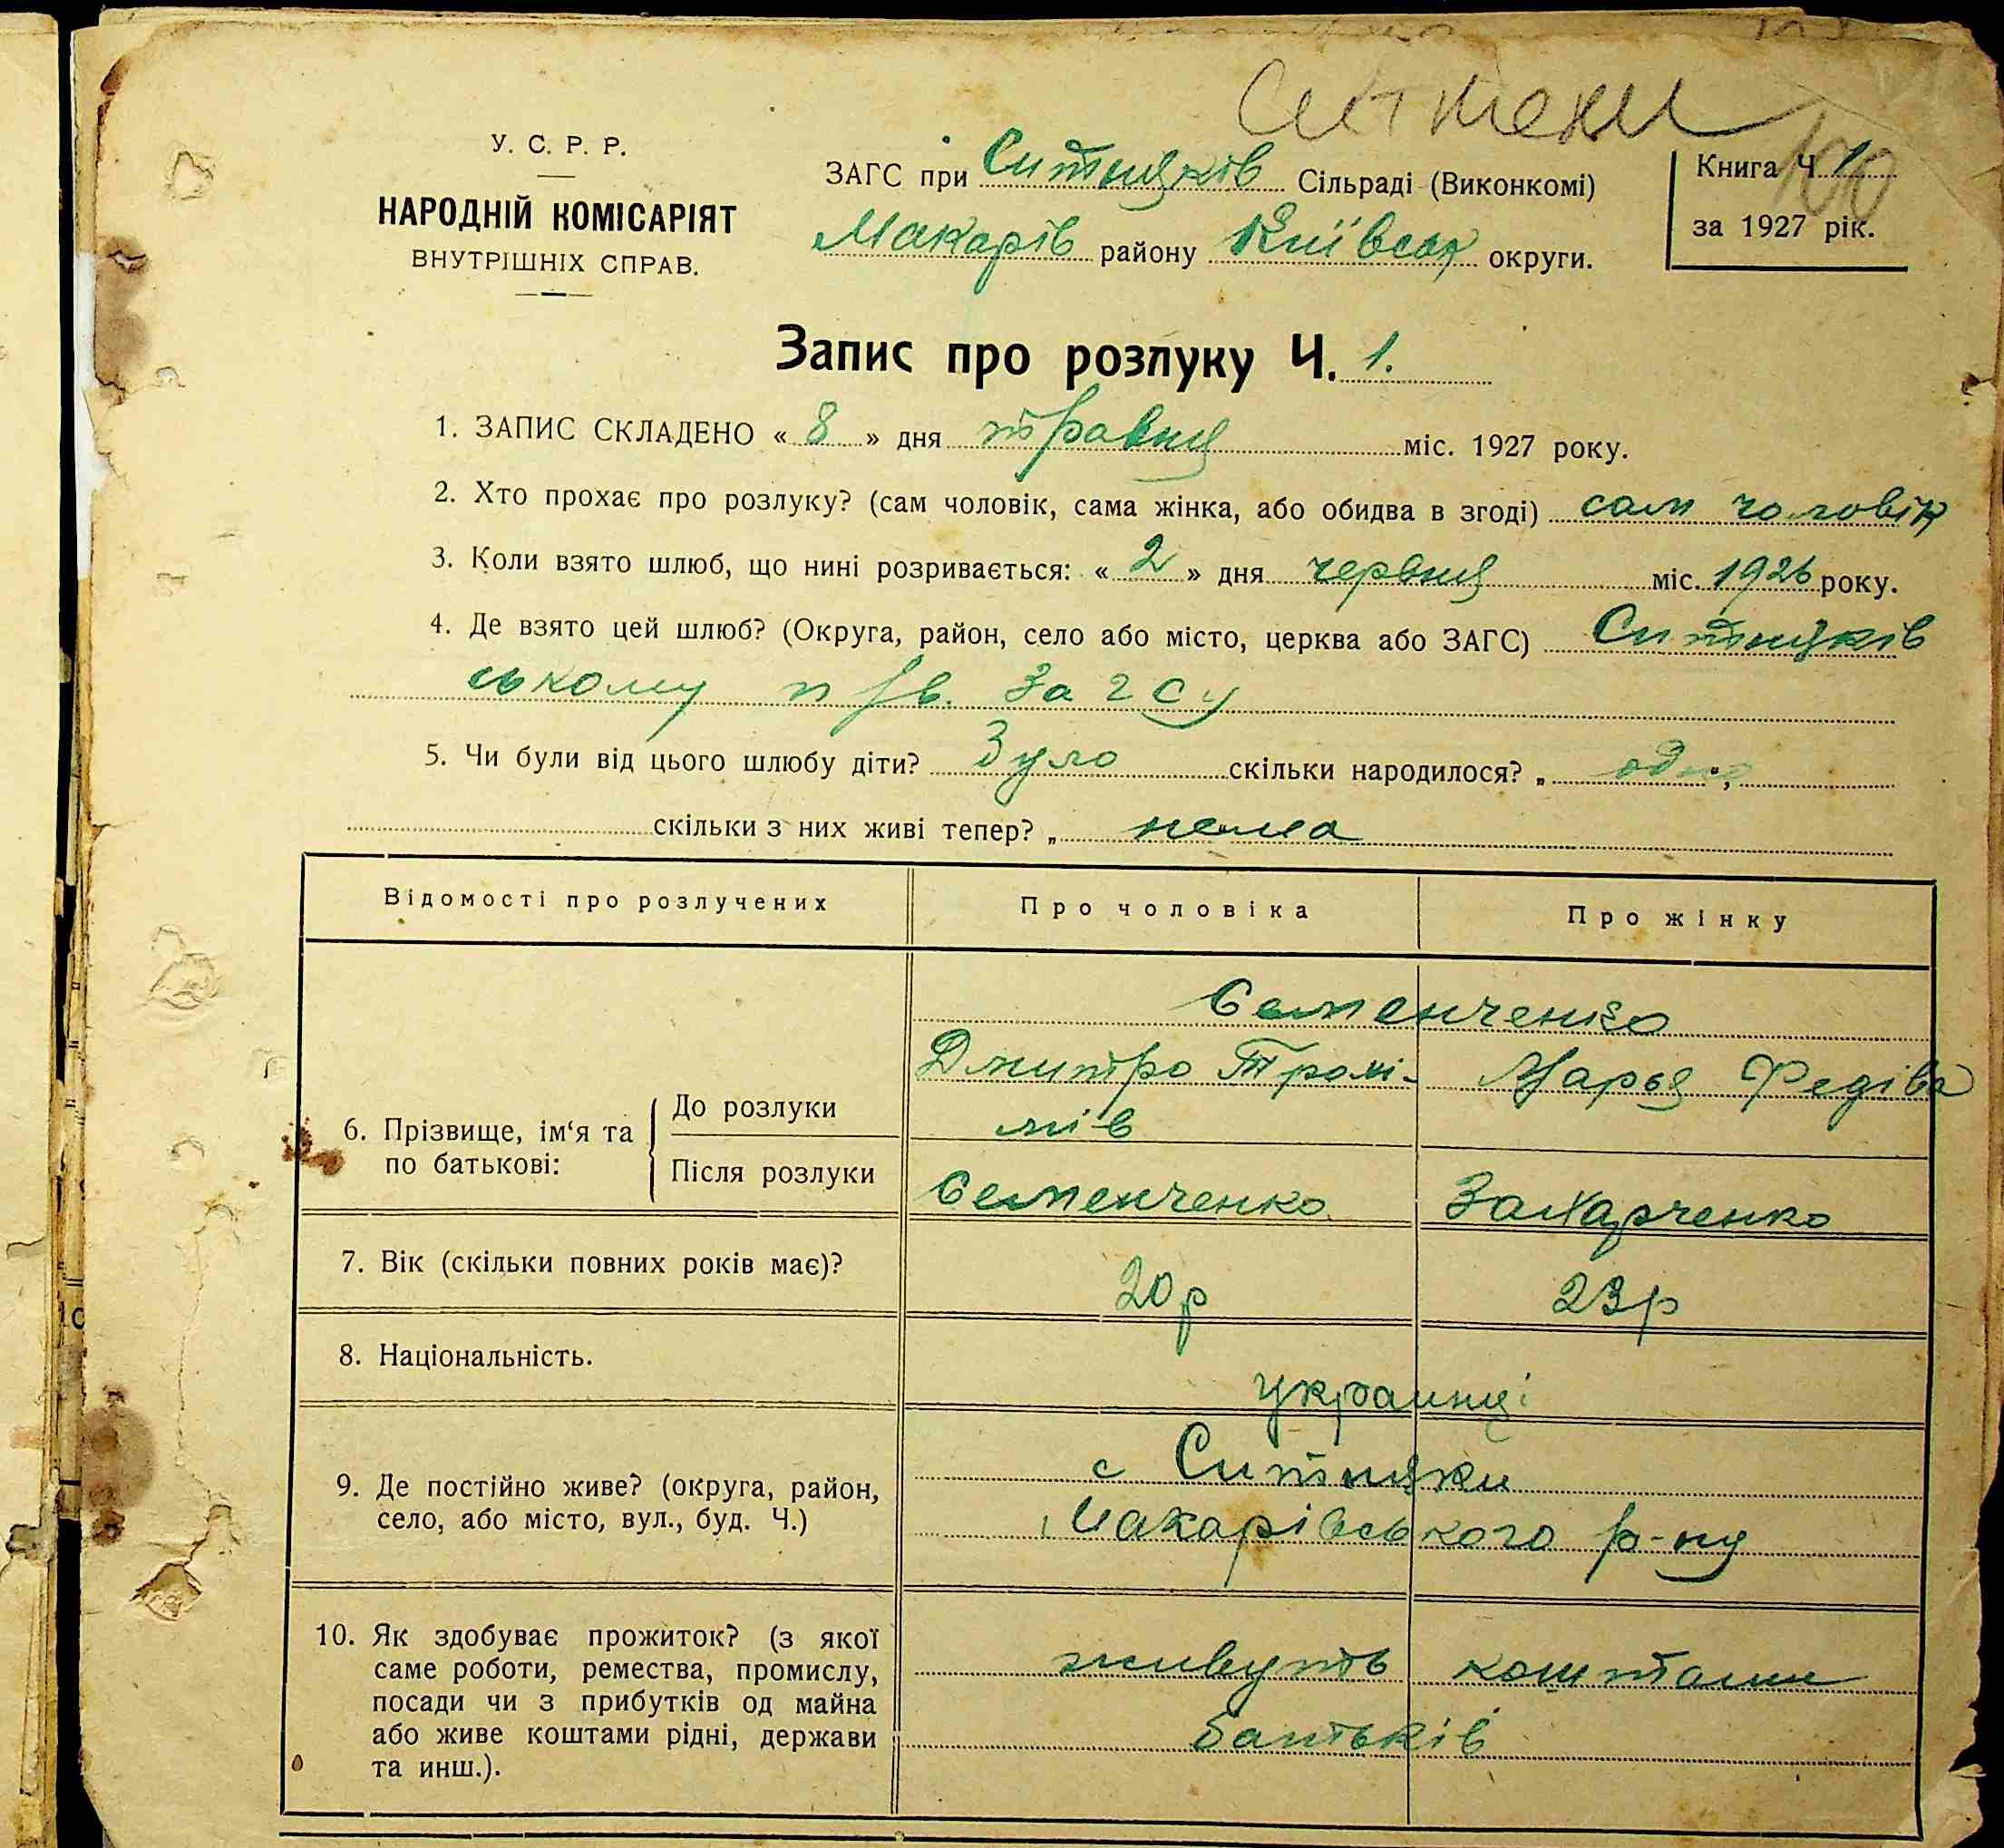 Ситняки
100
У. С. Р. Р.
НАРОДНІЙ КОМІСАРІЯТ
ВНУТРІШНІХ СПРАВ.
ЗАГС при Ситняків Сільраді (Виконкомі)
Макарів району Київськ округи.
Книга Ч 1
за 1927 рік.
Запис про розлуку Ч. 1.
1. ЗАПИС СКЛАДЕНО « 8 » дня травня міс. 1927 року.
2. Хто прохає про розлуку? (сам чоловік, сама жінка, або обидва в згоді) сам чоловік
3. Коли взято шлюб, що нині розривається: « 2 » дня червня міс. 1926 року.
4. Де взято цей шлюб? (Округа, район, село або місто, церква або ЗАГС) Ситняків
ському Загсу
5. Чи були від цього шлюбу діти? Було скільки народилося? „ одно,
скільки з них живі тепер? „ нема
Відомості про розлучених Про чоловіка Про жінку
Семенченко
Дмитро Трохи- Марья Федівна
мів
6. Прізвище, ім‘я та по батькові:
До розлуки
Після розлуки Семенченко Захарченко
7. Вік (скільки повних років має)? 20р 23р
8. Національність. украинці
9. Де постійно живе? (округа, район, с Ситняки
село, або місто, вул., буд. Ч.) Макарівського р-ну
10. Як здобуває прожиток? (з якої
саме роботи, ремества, промислу, живуть коштами
посади чи з прибутків од майна
або живе коштами рідні, держави батьків
та инш.).